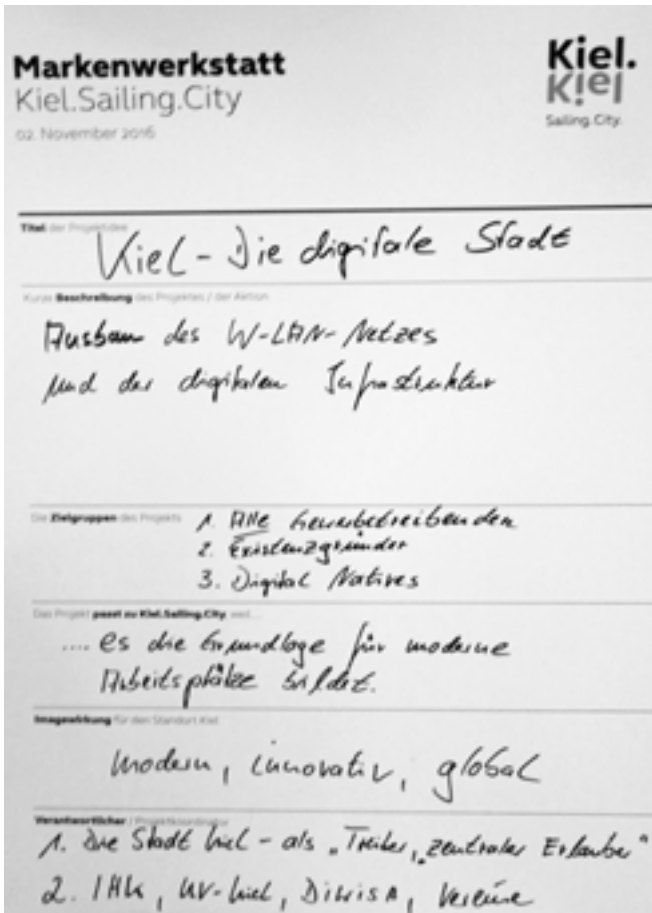 Markenwerkstatt
Kiel.Sailing.City
02. November 2016
Kiel.
Kiel
Sailing.City.
Titel der Projektidee
Kiel - Die digitale Stadt
Kurze Beschreibung des Projektes / der Aktion
Ausbau des W-LAN-Netzes
und der digitalen Infrastruktur
Die Zielgruppen des Projekts
1. Alle Gewerbetreibenden
2. Existenzgründer
3. Digital Natives
Das Projekt passt zu Kiel.Sailing.City, weil ...
.... es die Grundlage für moderne
Arbeitsplätze bildet.
Imagewirkung für den Standort Kiel
modern, innovativ, global
Verantwortlicher / Projektkoordinator
1. Die Stadt Kiel - als „Treiber, zentraler Erlauber"
2. IHK, UV-Kiel, DiWiSH, Vereine